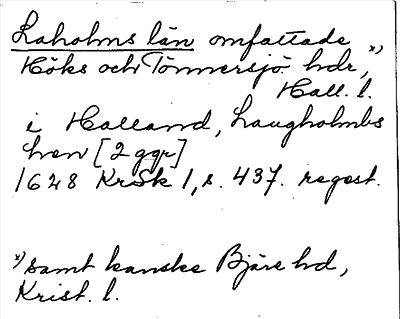 Laholms län omfattade
Höks och Tönnersjö hdr,x)
Hall. l.
i Halland, Laugholmbs
hven [2 ggr]
1628 KrSk 1, s. 437. regest.
x) samt kanske Bjäre hd,
Krist. l.